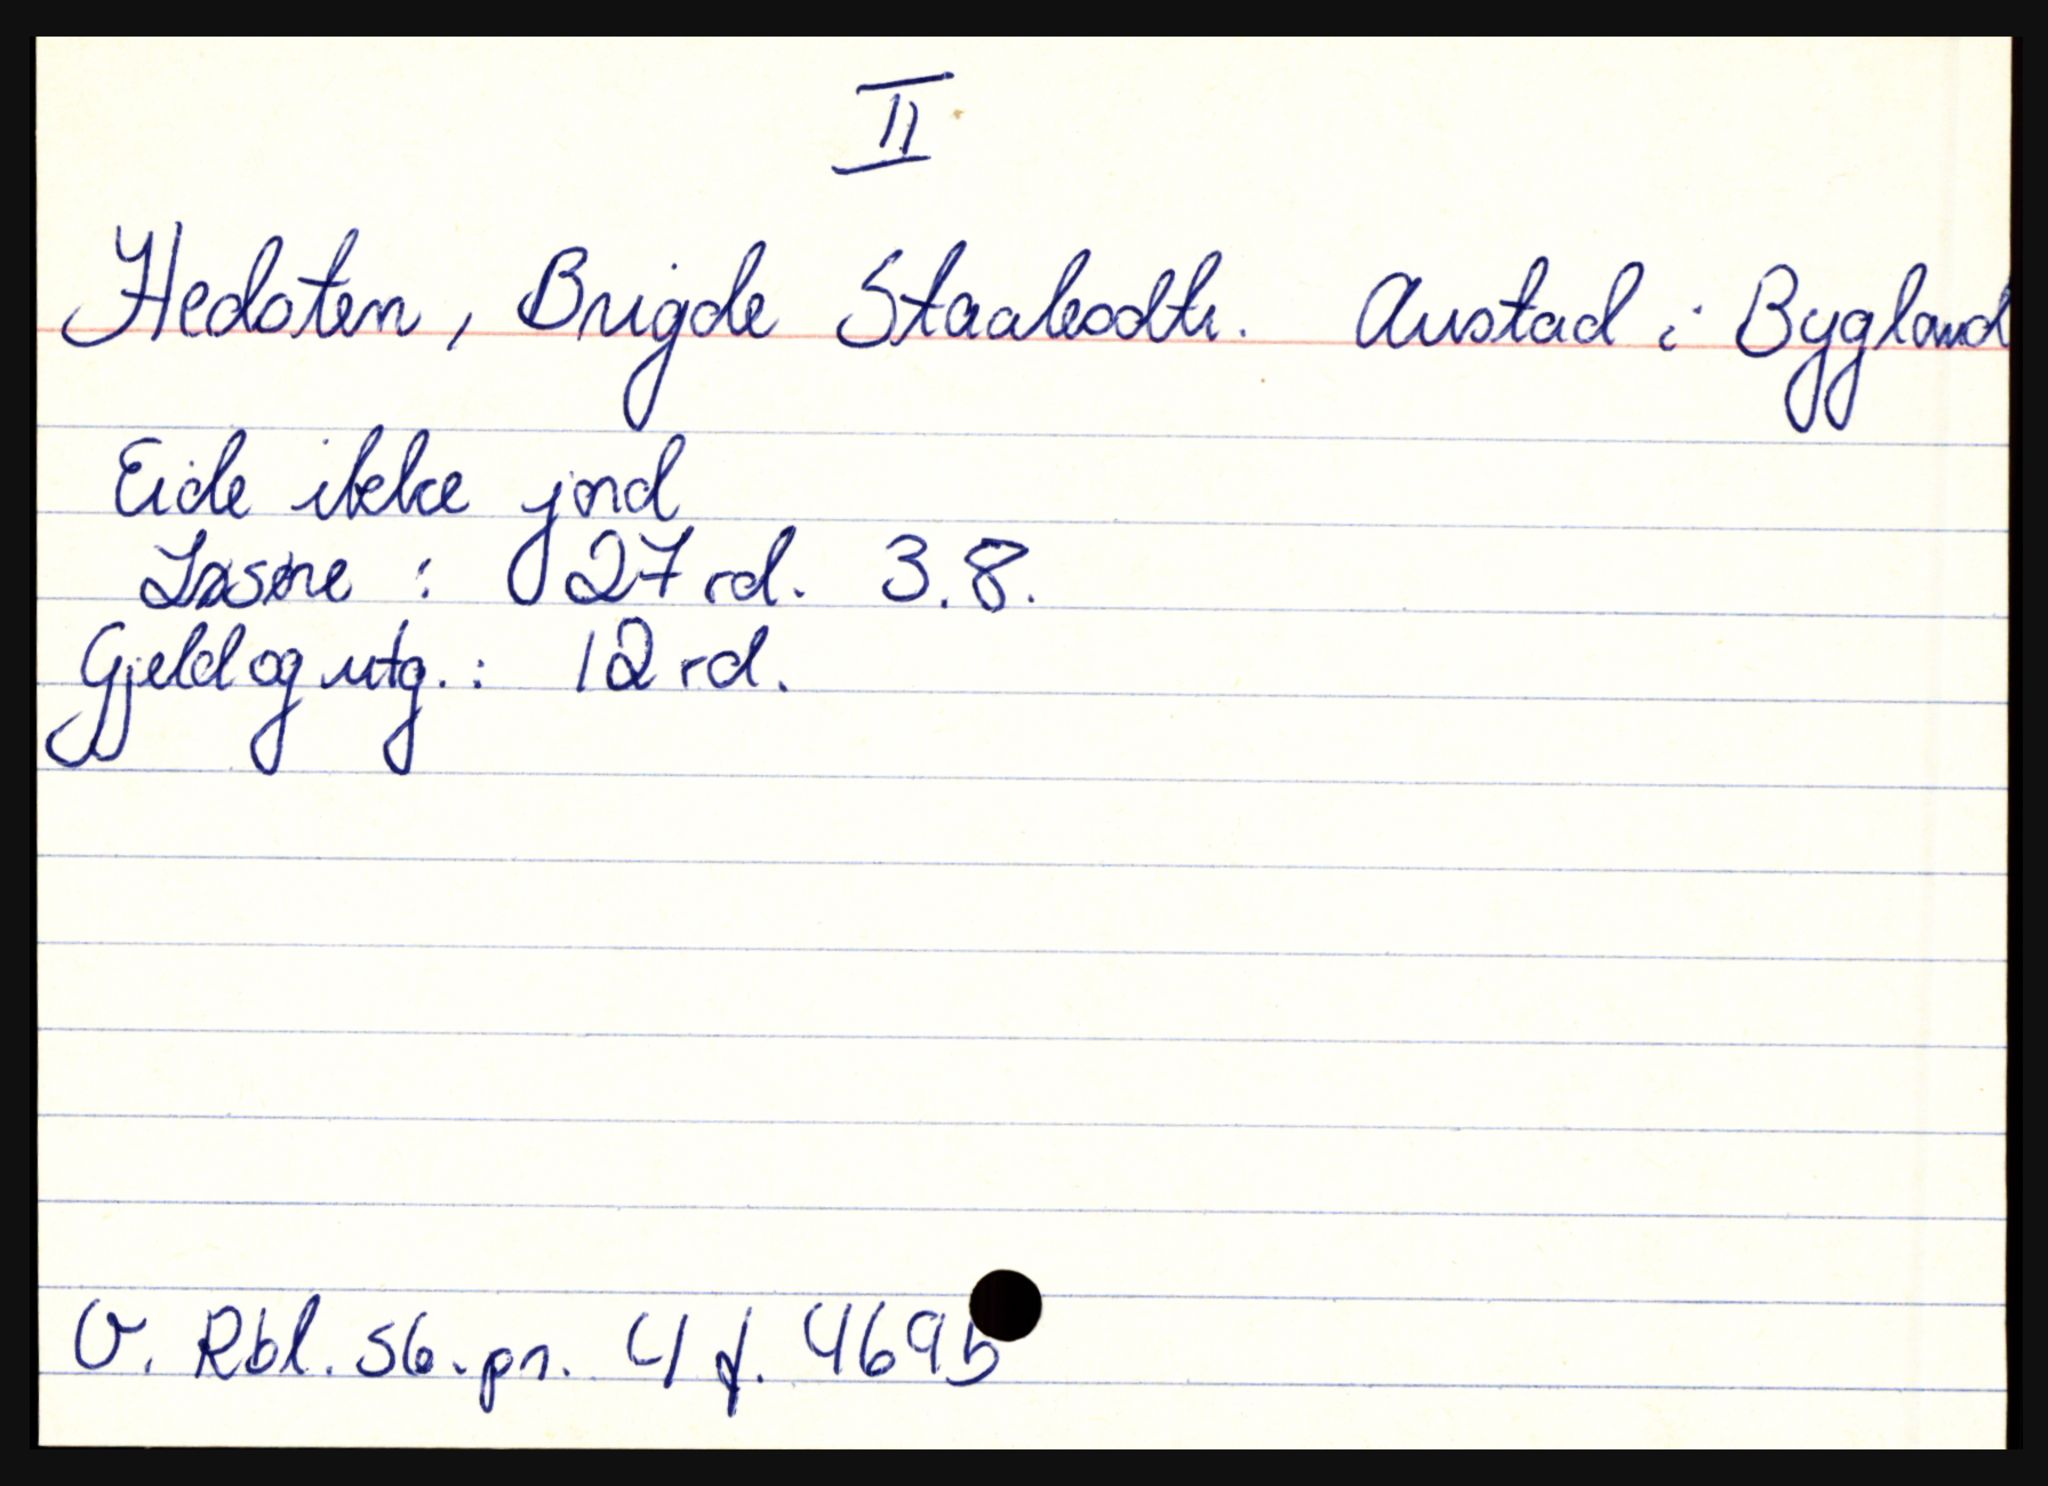 II
Hedoten, Brigde Staaleodtr. Austad i Bygland
Eide ikke jord
Løsøre : 27 rd. 3.8.
Gjeld og utg. : 12 rd.
V. Rbl. 56. pr. 4 f. 469b